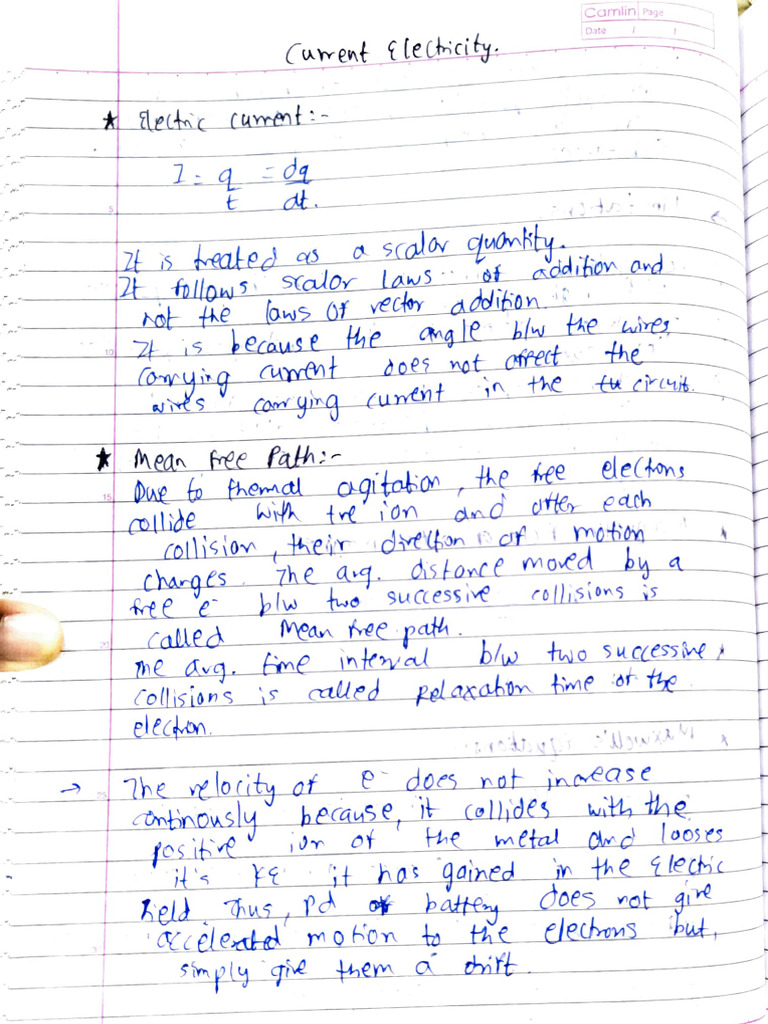 Camlin Page
Date / /
Current Electricity.
★ Electric current:-
I = q/t = dq/dt.
5
It is treated as a scalar quantity.
It follows scalar laws of addition and
not the laws of vector addition.
10 It is because the angle b/w the wires
carrying current does not affect the
wires carrying current in the circuit.
★ Mean free Path:-
15 Due to thermal agitation, the free electons
collide with +ve ion and after each
collision, their direction of motion
changes. The avg. distance moved by a
free e⁻ b/w two successive collisions is
20 called mean free path.
The avg. time interval b/w two successive
collisions is called Relaxation time of the
electron.
→ 25 The velocity of e⁻ does not increase
continously because, it collides with the
positive ion of the metal and looses
it's KE it has gained in the Electric
field. Thus, Pd of battery does not give
accelerated motion to the electrons but,
simply give them a drift.